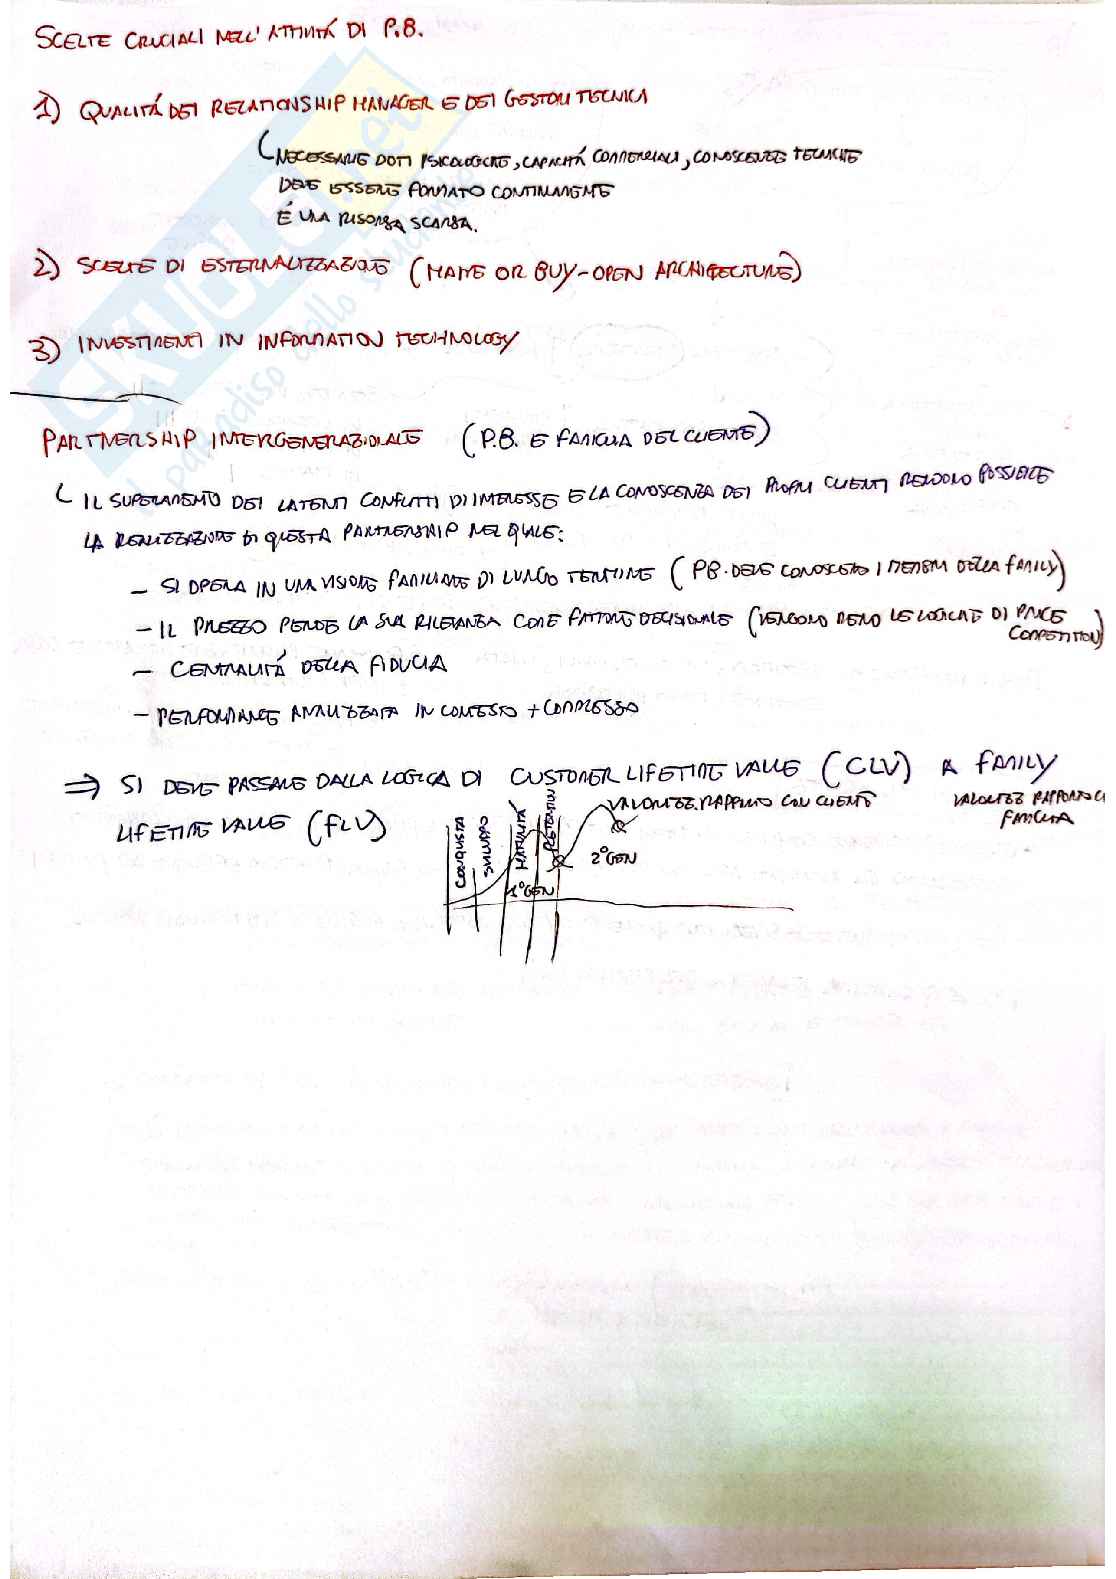 SCELTE CRUCIALI NELL'ATTIVITÁ DI P.B.
1) QUALITÁ DEI RELATIONSHIP MANAGER E DEI GESTORI TECNICA
NECESSARIE DOTI PSICOLOGICHE, CAPACITÁ COMMERCIALI, CONOSCENZE TECNICHE
DEVE ESSERE FORMATO CONTINUAMENTE
É UNA RISORSA SCARSA.
2) SCELTE DI ESTERNALIZZAZIONE (MAKE OR BUY - OPEN ARCHITECTURE)
3) INVESTIMENTI IN INFORMATION TECHNOLOGY
PARTNERSHIP INTERGENERAZIONALE (P.B. E FAMIGLIA DEL CLIENTE)
IL SUPERAMENTO DEI LATENTI CONFLITTI DI INTERESSE E LA CONOSCENZA DEI PROPRI CLIENTI RENDONO POSSIBILE
LA REALIZZAZIONE DI QUESTA PARTNERSHIP NEL QUALE:
- SI OPERA IN UNA VISIONE FAMILIARE DI LUNGO TERMINE (PB. DEVE CONOSCERE I MEMBRI DELLA FAMILY)
- IL PREZZO PERDE LA SUA RILEVANZA COME FATTORE DECISIONALE (VENGONO MENO LE LOGICHE DI PRICE
COMPETITION)
- CENTRALITÁ DELLA FIDUCIA
- PERFORMANCE ANALIZZATA IN CONTESTO + COMPLESSO
⇒ SI DEVE PASSARE DALLA LOGICA DI CUSTOMER LIFETIME VALUE (CLV) A FAMILY
VALORIZZ. RAPPORTO CON CLIENTE
VALORIZZ RAPPORTO C
FAMIGLIA
LIFETIME VALUE (FLV)
CONQUISTA
SVILUPPO
MATURITÁ
RETENTION
1° GEN
2° GEN
SKUOLA.net
il paradiso dello studente